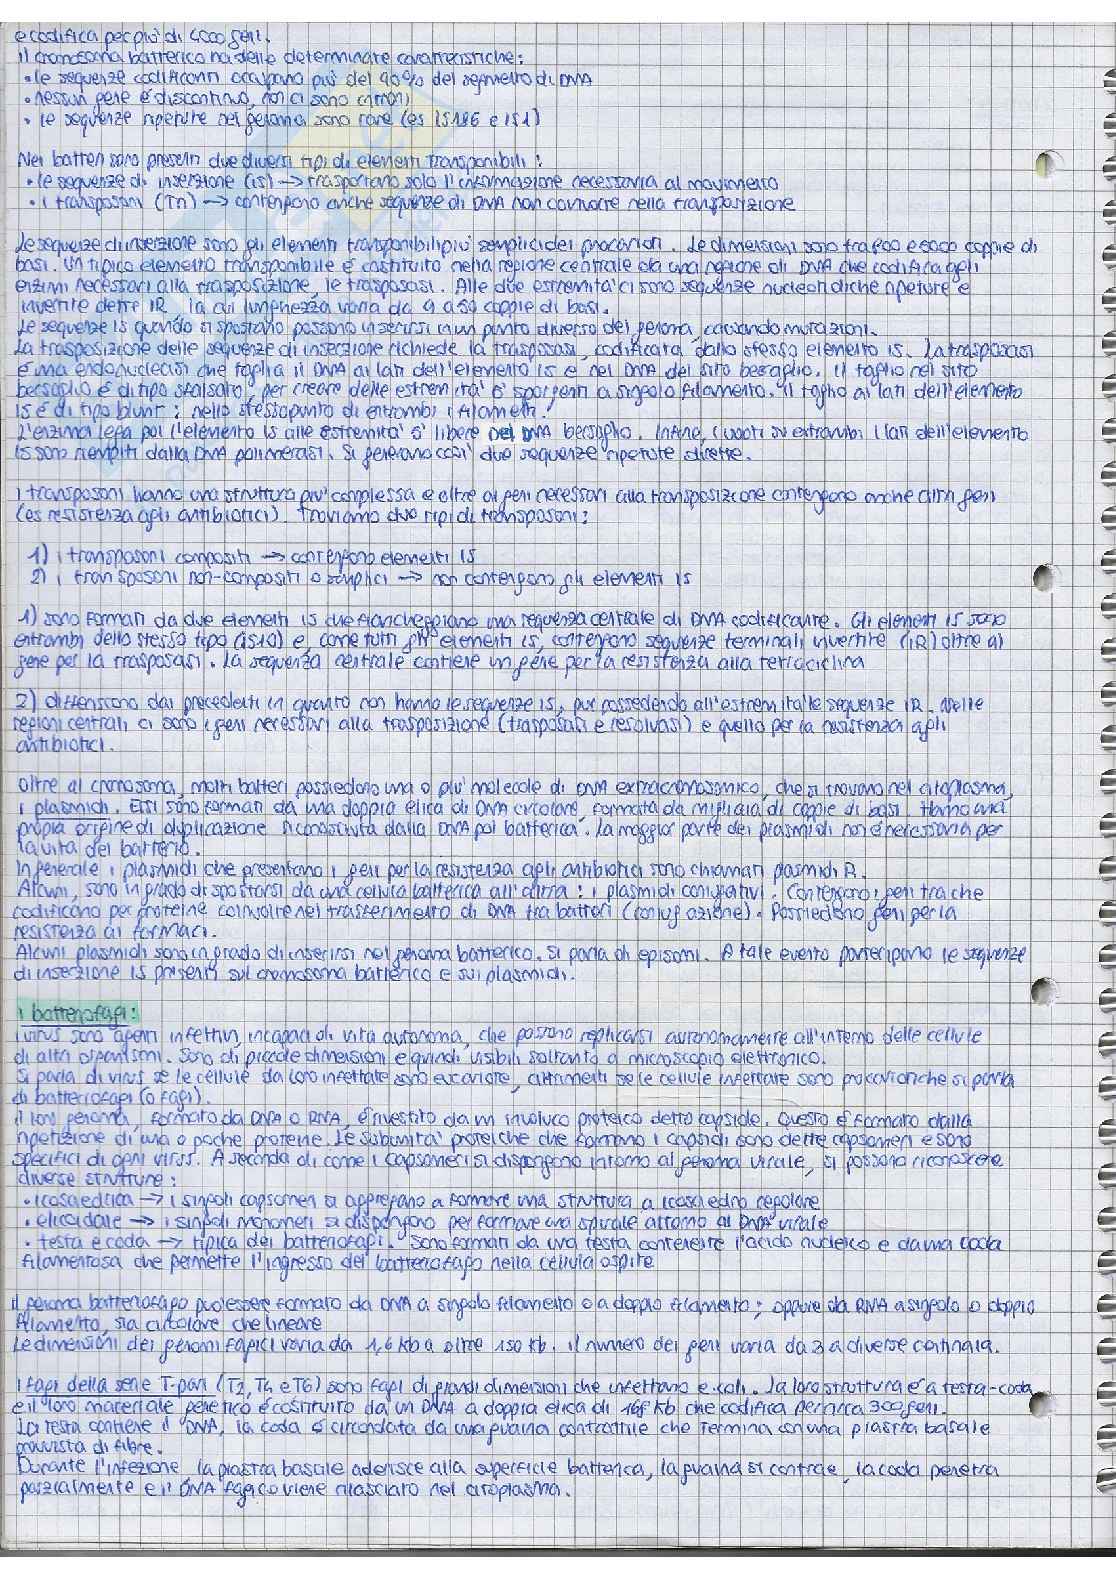 e codifica per più di 4000 geni.
Il cromosoma batterico ha delle determinate caratteristiche:
• le sequenze codificanti occupano più del 90% del segmento di DNA
• nessun gene è discontinuo, non ci sono introni
• le sequenze ripetute nel genoma sono rare (es IS186 e IS1)
Nei batteri sono presenti due diversi tipi di elementi transponibili:
• le sequenze di inserzione (is) → trasportano solo l'informazione necessaria al movimento
• i transposoni (Tn) → contengono anche sequenze di DNA non coinvolte nella transposizione
Le sequenze di inserzione sono gli elementi transponibili più semplici dei procarioti. Le dimensioni sono tra 800 e 5000 coppie di
basi. Un tipico elemento transponibile è costituito nella regione centrale da una regione di DNA che codifica geli
enzimi necessari alla trasposizione, le trasposasi. Alle due estremità ci sono sequenze nucleotidiche ripetute e
invertite dette IR la cui lunghezza varia da 9 a 50 coppie di basi.
Le sequenze IS quando si spostano possono inserirsi in un punto diverso del genoma, causando mutazioni.
La trasposizione delle sequenze di inserzione richiede la trasposasi, codificata dallo stesso elemento is. La trasposasi
è una endonucleasi che taglia il DNA ai lati dell'elemento IS e nel DNA del sito bersaglio. Il taglio nel sito
bersaglio è di tipo sfalsato, per creare delle estremità 5' sporgenti a singolo filamento. Il taglio ai lati dell'elemento
IS è di tipo blunt: nello stesso punto di entrambi i filamenti.
L'enzima lega poi l'elemento is alle estremità 5' libere nel DNA bersaglio. Infine, i vuoti su entrambi i lati dell'elemento
IS sono riempiti dalla DNA polimerasi. Si generano così due sequenze ripetute dirette.
I transposoni hanno una struttura più complessa e oltre ai geni necessari alla transposizione contengono anche altri geni
(es resistenza agli antibiotici). Troviamo due tipi di transposoni:
1) i transposoni compositi → contengono elementi IS
2) i transposoni non-compositi o semplici → non contengono gli elementi IS
1) sono formati da due elementi IS che fiancheggiano una sequenza centrale di DNA codificante. Gli elementi IS sono
entrambi dello stesso tipo (IS10) e, come tutti gli elementi IS, contengono sequenze terminali invertite (IR) oltre al
gene per la trasposasi. La sequenza centrale contiene un gene per la resistenza alla tetraciclina
2) differiscono dai precedenti in quanto non hanno le sequenze IS, pur possedendo all'estremità le sequenze IR. Nelle
regioni centrali ci sono i geni necessari alla trasposizione (trasposasi e resolvasi) e quello per la resistenza agli
antibiotici.
Oltre al cromosoma, molti batteri possiedono una o più molecole di DNA extracromosomico, che si trovano nel citoplasma,
i plasmidi. Essi sono formati da una doppia elica di DNA circolare, formata da migliaia di coppie di basi. Hanno una
propria origine di duplicazione riconosciuta dalla DNA pol batterica. La maggior parte dei plasmidi non è necessaria per
la vita del batterio.
In generale i plasmidi che presentano i geni per la resistenza agli antibiotici sono chiamati plasmidi R.
Alcuni, sono in grado di spostarsi da una cellula batterica all'altra: i plasmidi coniugativi. Contengono i geni tra che
codificano per proteine coinvolte nel trasferimento di DNA tra batteri (coniugazione). Possiedono geni per la
resistenza ai farmaci.
Alcuni plasmidi sono in grado di inserirsi nel genoma batterico. Si parla di episomi. A tale evento partecipano le sequenze
di inserzione IS presenti sul cromosoma batterico e sui plasmidi.
I batteriofagi:
I virus sono agenti infettivi, incapaci di vita autonoma, che possono replicarsi autonomamente all'interno delle cellule
di altri organismi. Sono di piccole dimensioni e quindi visibili soltanto a microscopio elettronico.
Si parla di virus se le cellule da loro infettate sono eucariote, altrimenti se le cellule infettate sono procariotiche si parla
di batteriofagi (o fagi).
Il loro genoma, formato da DNA o RNA, è rivestito da un involuco proteico detto capside. Questo è formato dalla
ripetizione di una o poche proteine. Le subunità proteiche che formano i capsidi sono dette capsomeri e sono
specifici di ogni virus. A seconda di come i capsomeri si dispongono intorno al genoma virale, si possono riconoscere
diverse strutture:
• icosaedrica → i singoli capsomeri si aggregano a formare una struttura a icosaedro regolare
• elicoidale → i singoli monomeri si dispongono per formare una spirale attorno al DNA virale
• testa e coda → tipica dei batteriofagi. Sono formati da una testa contenente l'acido nucleico e da una coda
filamentosa che permette l'ingresso del batteriofago nella cellula ospite
Il genoma batteriofago può essere formato da DNA a singolo filamento o a doppio filamento; oppure da RNA a singolo o doppio
filamento, sia circolare che lineare
Le dimensioni dei genomi fagici varia da 1,6 Kb a oltre 150 kb. Il numero dei geni varia da 3 a diverse centinaia.
I fagi della serie T-pari (T2, T4 e T6) sono fagi di grandi dimensioni che infettano e.coli. La loro struttura è a testa-coda
e il loro materiale genetico è costituito da un DNA a doppia elica di 168 Kb che codifica per circa 300 geni.
La testa contiene il DNA, la coda è circondata da una guaina contrattile che termina con una piastra basale
provvista di fibre.
Durante l'infezione, la piastra basale aderisce alla superficie batterica, la guaina si contrae, la coda penetra
parzialmente e il DNA fagico viene rilasciato nel citoplasma.